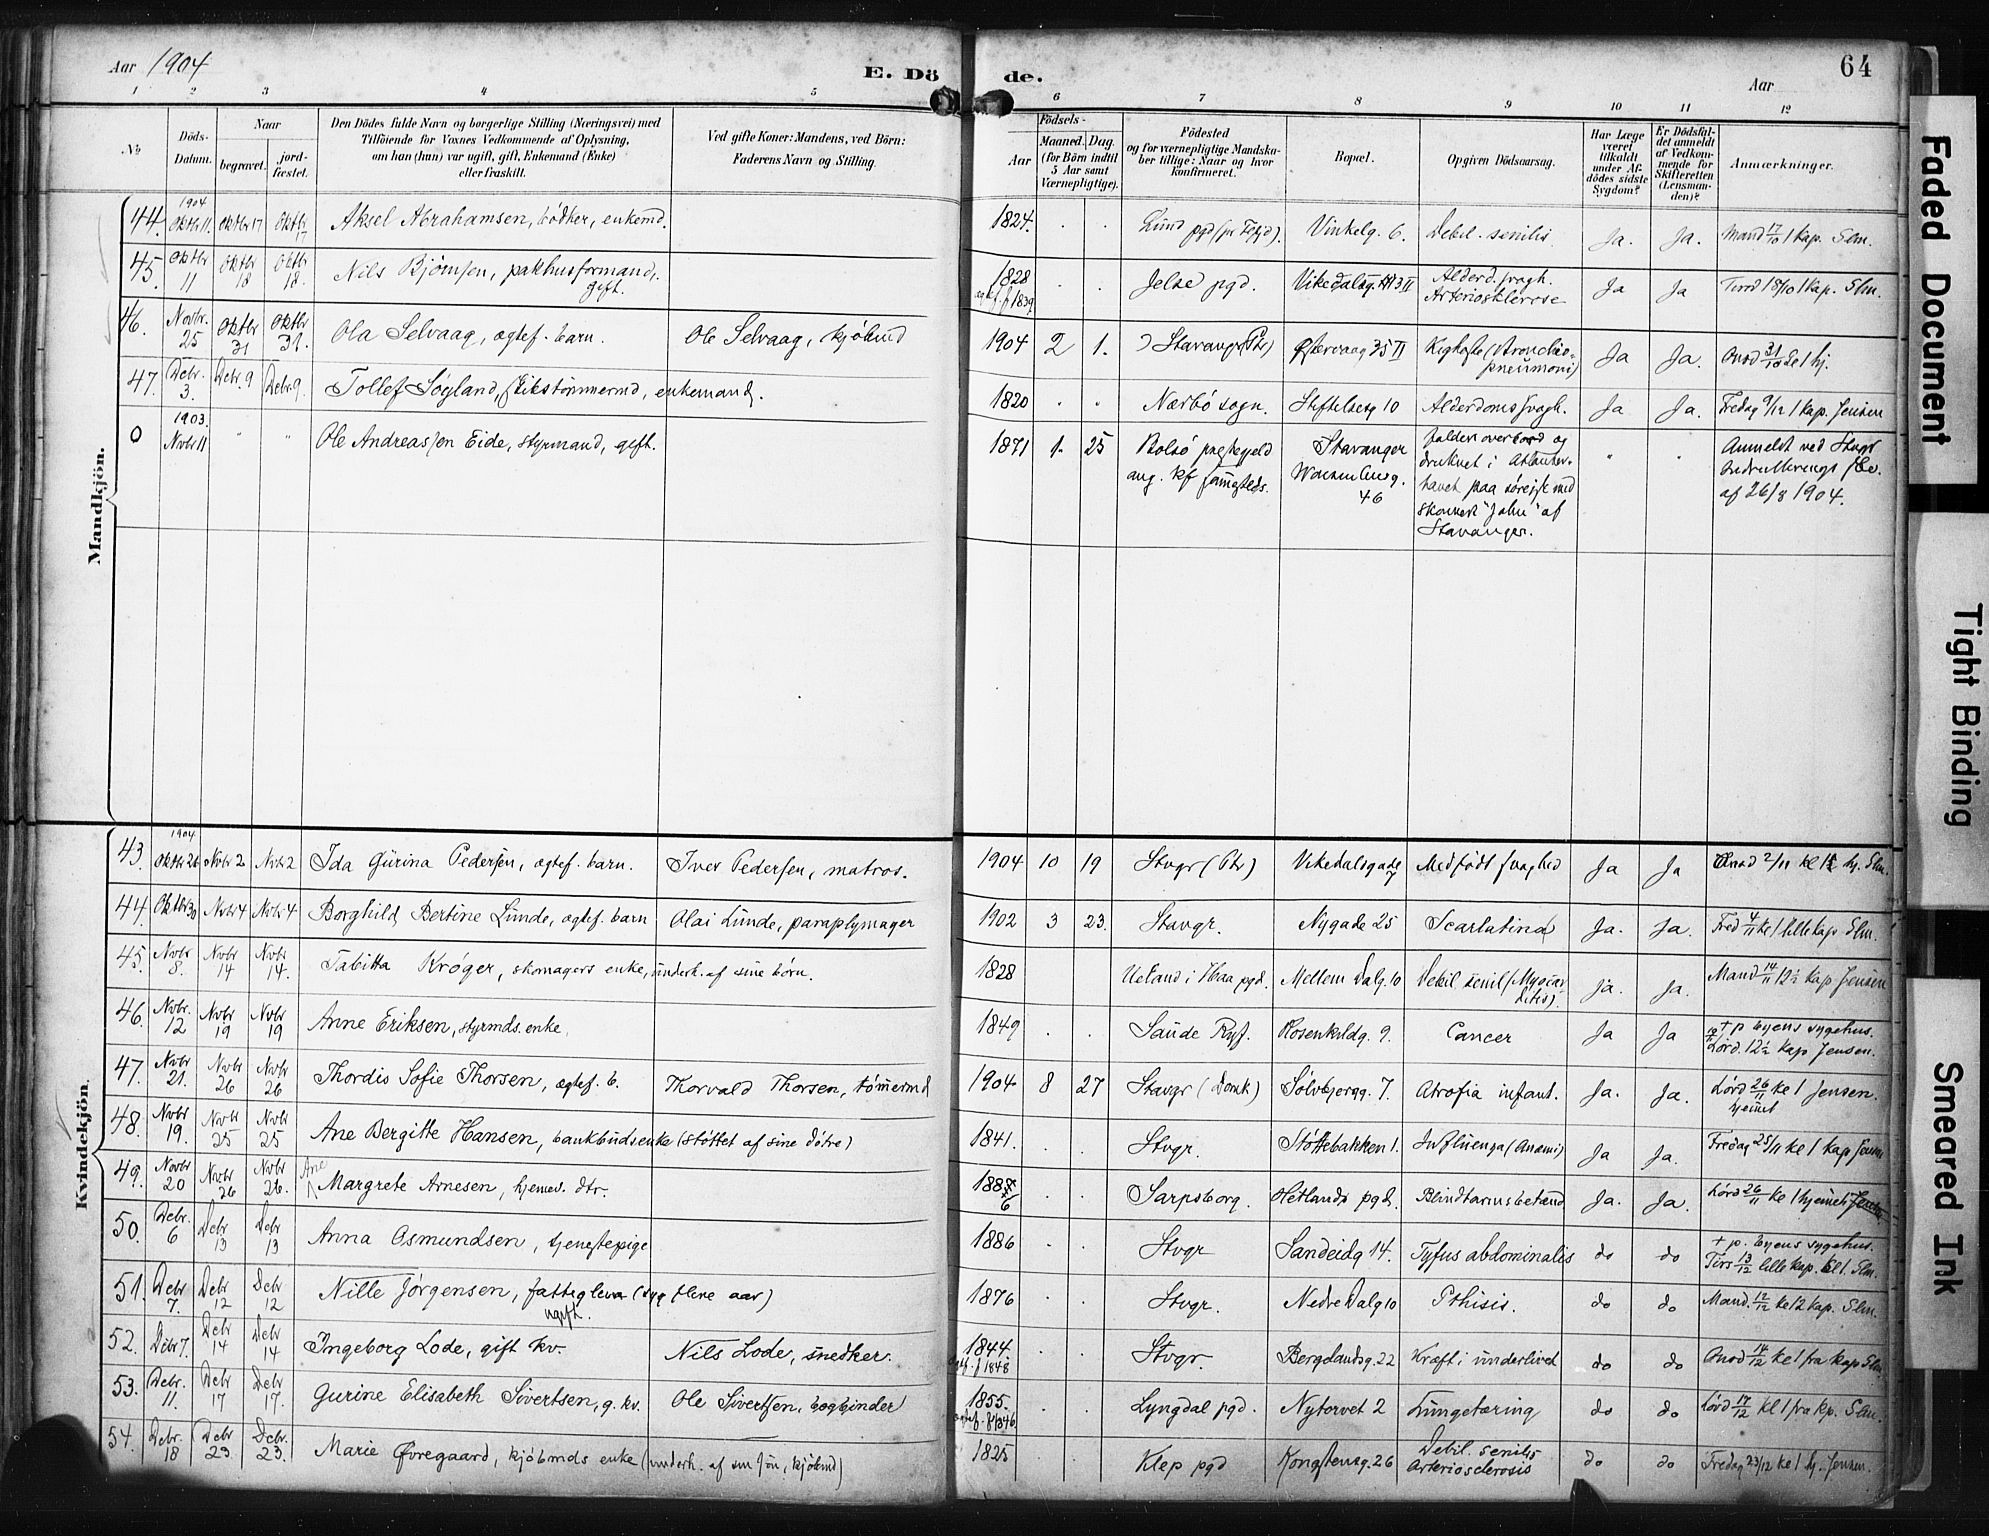 Aar 1904
E. Dö de.
64
Aar
1 2 3 4 5 6 7 8 9 10 11 12
No
Döds-Datum.
Naar
begravet.
jord-fæstet.
Den Dödes fulde Navn og borgerlige Stilling (Næringsvei) med
Tilföiende for Voxnes Vedkommende af Oplysning,
om han (hun) var ugift, gift, Enkemand (Enke)
eller fraskilt.
Ved gifte Koner: Mandens, ved Börn:
Faderens Navn og Stilling.
Födsels-
Aar
Maaned. Dag.
(for Börn indtil
5 Aar samt
Værnepligtige).
Födested
og for værnepligtige Mandska-
ber tillige: Naar og hvor
konfirmeret.
Bopæl.
Opgiven Dödsaarsag.
Har Læge
været
tilkaldt
under Af-
dödes sidste
Sygdom?
Er Dödsfal-
det anmeldt
af Vedkom-
mende for
Skifteretten
(Lensman-
den)?
Anmærkninger.
Mandkjön.
44. 1904 Oktbr 11. Oktbr 17 Oktbr 17 Aksel Abrahamsen, bødker, enkemd. 1824. . . Lund pgd Vinkelg. 6. Debil. senilis Ja. Ja. Mand 17/10 1 kap. Slm.
45. Oktbr 11 Oktbr 18 Oktbr 18. Nils Bjørnsen, pakhusformand, gift. 1828 1839 . . Jelse pgd. Vikedalsg. 3 II Alderd. svagh. Arteriosklerose Ja Ja Tirsd 18/10 1 kap. Slm.
46. Novbr. 25 Oktbr 31 Oktbr 31. Ola Selvaag, ægtef. barn. Ole Selvaag, kjøbmd 1904 2 1. Stavanger (Ptr) Østervaag 35 II Kighoste (Bronchio-pneumoni) Ja Ja. 31/10 hj.
47. Debr. 3. Debr. 9 Debr. 9. Tollef Søyland, skibstømmermd, enkemand. 1820 " Nærbø sogn. Stiftelsesg 10 Alderdomssvagh. Ja Ja. Fredag 9/12 1 kap. Jensen
0 1903. Novbr 11 " " Ole Andreassen Eide, styrmand, gift. 1871 1. 25 Bolsø prestegjeld
ang. kf samsteds.
Stavanger
46
falden overbord og
druknet i Atlanter-
havet paa sørejse med
skonnert "John" af
Stavanger.
" "
Anmeldt ved Stvgr
af 26/8 1904.
Kvindekjön.
43. 1904 Oktbr 26 Novbr 2 Novbr 2 Ida Gurina Pedersen, ægtef. barn. Iver Pedersen, matros. 1904 10 19 Stvgr (Ptr) Vikedalsgade 7 Medfødt svaghed Ja Ja Onsd 2/11 kl hj. Slm.
44. Oktbr 30 Novbr 4 Novbr 4 Borghild Bertine Lunde, ægtef. barn Olai Lunde, paraplymager 1902 3 23. Stavgr. Nygade 25 Scarlatina Ja. Ja. Fred 4/11 kl 1 lille kap Slm.
45. Novbr 8. Novbr 14 Novbr 14. Tabitta Krøger, skomagers enke, underh. af sine børn. 1828 i Haa pgd. Mellem Dalg. 10 Debil. senil (Myocarditis). ja. Ja. Mand 14/11 12½ kap Jensen
46. Novbr. 12 Novbr 19 Novbr 19 Anne Eriksen, styrmds. enke. 1849 . . Saude Ryf. Rosenkildg. 9. Cancer Ja Ja † p byens sygehus. 19/11 Lørd. 12½ kap Jensen.
47. Novbr 21. Novbr 26 Novbr 26 Thordis Sofie Thorsen, ægtef. b. Thorvald Thorsen, tømermd 1904 8 27 Stavgr (Domk) Sølvbjergg. 7. Atrofia infant. Ja. Ja. Lørd 26/11 kl 1 Jensen. hjemet
48. Novbr 19. Novbr 25 Novbr 25 Ane Bergitte Hansen, bankbudsenke (støttet af sine døtre) 1841. . . Stvgr. Støttebakken 1. Influenza (Anæmi) Ja Ja. Fredag 25/11 kl 1 kap Jensen
49. Novbr 20 Novbr 26 Novbr 26. Ane Margrete Arnesen, hjemev. dtr. 188 6 . . Sarpsborg. Hetlands pgd. Blindtarmsbetænd Ja. Ja. Lørd 26/11 kl 1 hjemet Jensen
50. Debr. 6 Debr 13 Debr 13 Anna Osmundsen, tjenestepige 1886 . . Stvgr Sandeidg 14. Tyfus abdominalis do do † p. byens sygehus. Tirs 13/12 lille kap. kl 1. Slm.
51. Debr 7. Debr 12 Debr 12 Nille Jørgensen, fattiglem (syg flere aar) ugift. 1876 . . Stvgr. Nedre Dalg 10 Pthisis. do do Mand. 12/12 kl 2 kap. Slm.
52. Debr 7. Debr 14 Debr 14 Ingeborg Lode, gift kv. Nils Lode, snedker. 1844. 1848 . . Stvgr. Berglandsg. 22 Kræft i underlivet do do Onsd 14/12 kl 1 fra kap Slm.
53. Debr. 11. Debr 17 Debr 17. Gurine Elisabeth Sivertsen, g. kv. Ole Sivertsen, bogbinder 1855. 1846 . . Lyngdal pgd. Nytorvet 2 Lungetæring do do Lørd 17/12 kl 1 fra kp. Slm.
54. Debr. 18 Debr 23 Debr. 23. Marie Øvregaard, kjøbmds enke (underh. af sin søn, kjøbmd) 1825 . . Klep pgd Kongstensg. 26 Debil. senilis Arteriosclerosis do do Fredag 23/12 kl 1 hj. Jensen.
Faded Document
Tight Binding
Smeared Ink